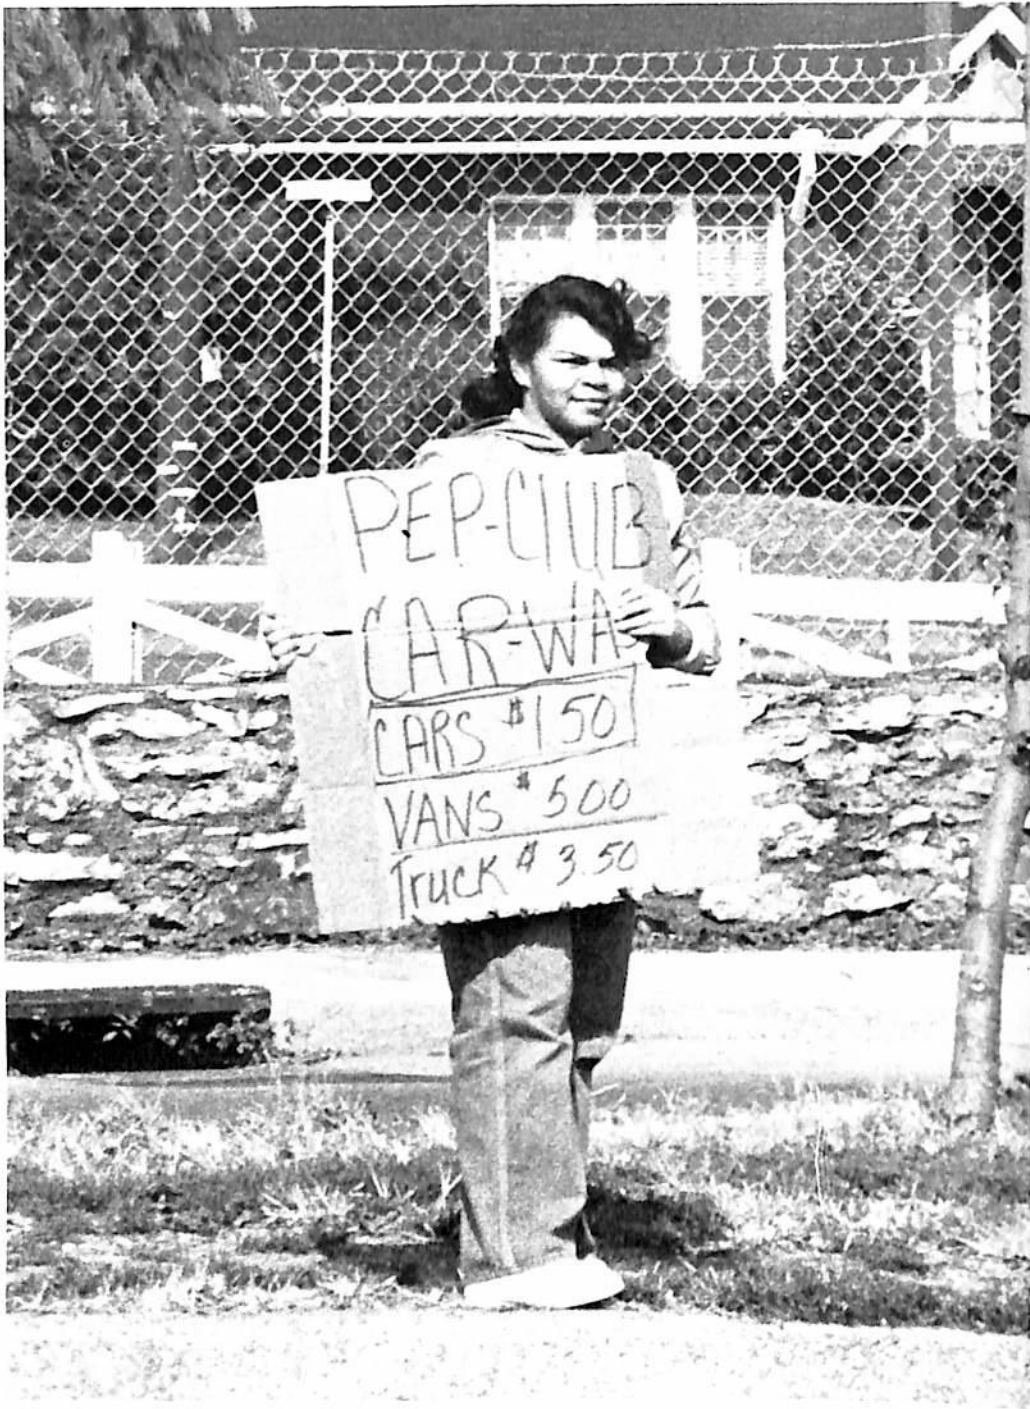 PEP-CLUB
CAR-WA
CARS $1.50
VANS $5.00
Truck $3.50